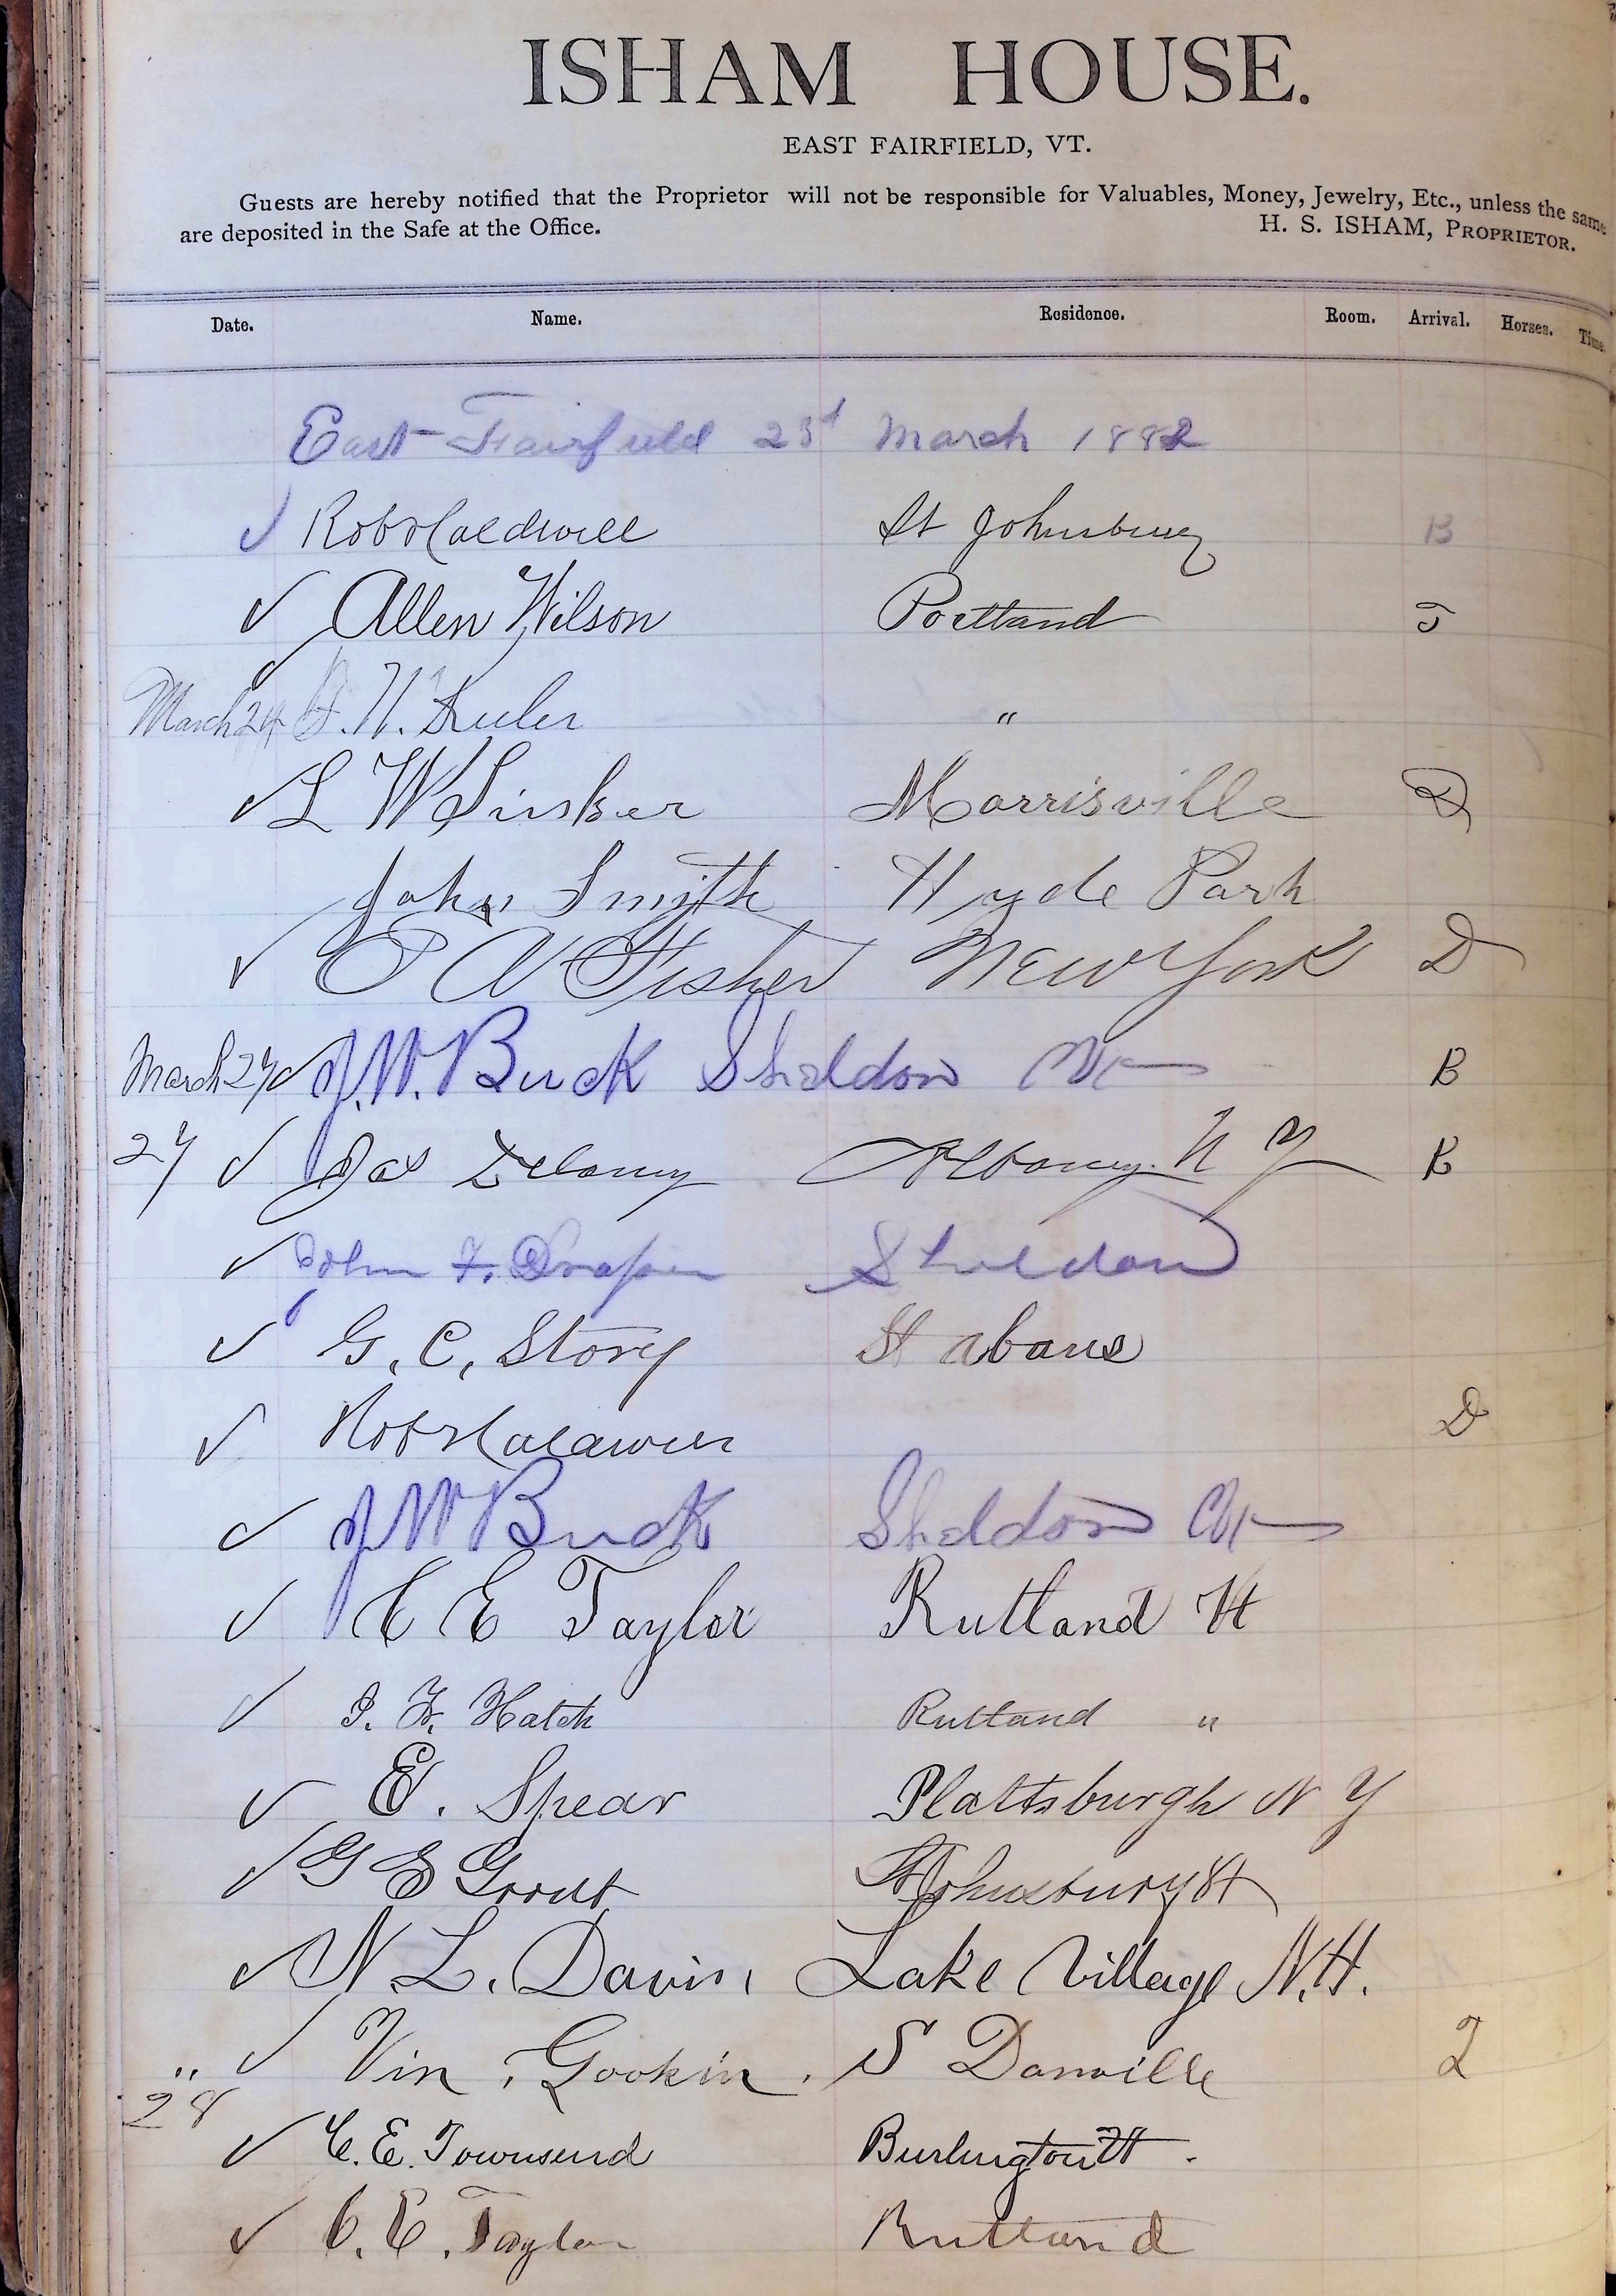 ISHAM HOUSE.
EAST FAIRFIELD, VT.
Guests are hereby notified that the Proprietor will not be responsible for Valuables, Money, Jewelry, Etc., unless the same
are deposited in the Safe at the Office. H. S. ISHAM, PROPRIETOR.
Date. Name. Residence. Room. Arrival. Horses. Time.
East Fairfield 23d March 1882
✓ Robt Caldwell St Johnsbury B
✓ Allen Wilson Portland T
✓ March 24 "
✓ L W Sinsker Morrisville D
John Smith Hyde Park
✓ Fisher New York D
March 27 ✓ J. W. Buck Sheldon Vt B
27 ✓ Jas Delaney Albany. N Y B
✓ John F. Draper Sheldon
✓ G. C. Story St abans
✓ Robt Caldwell D
✓ J W Buck Sheldon Vt
✓ C E Taylor Rutland Vt
✓ Hatch Rutland "
✓ E. Spear Plattsburgh N Y
✓ G E Grout St Johnsbury Vt
✓ N. L. Davis, Lake Village N.H.
" ✓ Vin. Gookin. S Danville
28
✓ C. E. Townsend Burlington Vt.
✓ C. E. Taylor Rutland